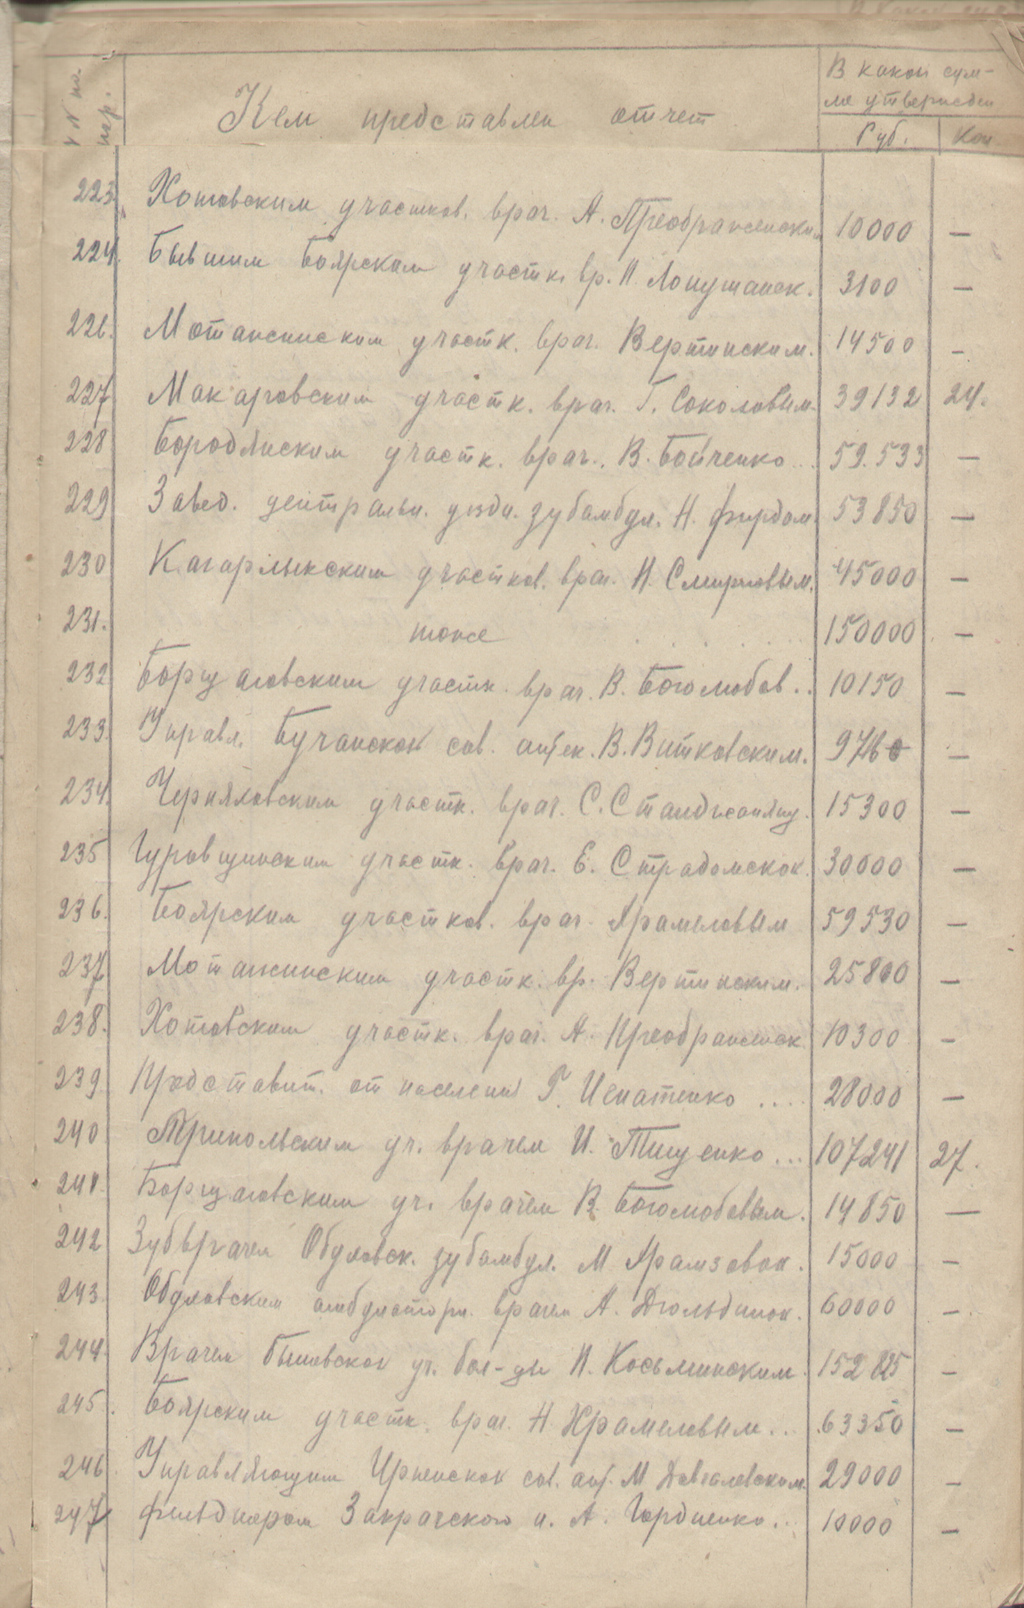 № по пор. Кем представлен отчет В какой сумме утвержден
Руб. Коп
223 Хотовским участков. врач. А. Преображенским 10000 —
224. Бывшим Боярским участк. вр. Н. Лопушанск. 3100 —
226. Мотажинским участк. врач. Вертинским. 14500 —
227 Макаровским участк. врач. Г. Соколовым. 39132 24.
228 Бородянским участк. врач. В. Бойченко .. 59.533 —
229 Завед. централън. уездн. зубамбул. Н. 53850 —
230 Кагарлыкским участков. врач. Н. Смирновым. 45000 —
231. тоже 150000 —
232 Борщаговским участк. врач. В. Боголюбов .. 10150 —
233. Управл. Бучанской сов. аптек. В. Витковским. 9760 —
234 Черняховским участк. врач. С. 15300 —
235 Гуровщинским участк. врач. Е. Страдомской 30000 —
236. Боярским участков. врач. Храмеловым 59530 —
237 Мотажинским участк. вр. Вертинским. 25800 —
238. Хотовским участк. врач. А. Преображенск 10300 —
239. Представит. от населения Г. Игнатенко .... 28000 —
240 Трипольским уч. врачем И. Тищенко ... 107241 27.
241. Борщаговским уч. врачем В. Боголюбовым. 14850 —
242 Зубврачем Обуховск. зубамбул. М. 15000 —
243. Обуховским амбулаторн. врачем А. 60000 —
244. Врачем Бышевской уч. бол-цы Н. Косьминским. 152825 —
245. Боярским участк. врач. Н Храмеловым .. 63350 —
246 Управляющим Ирпенской сов. апт. М. 29000 —
247 Фельдшером н. А. Гордиенко ... 10000 —